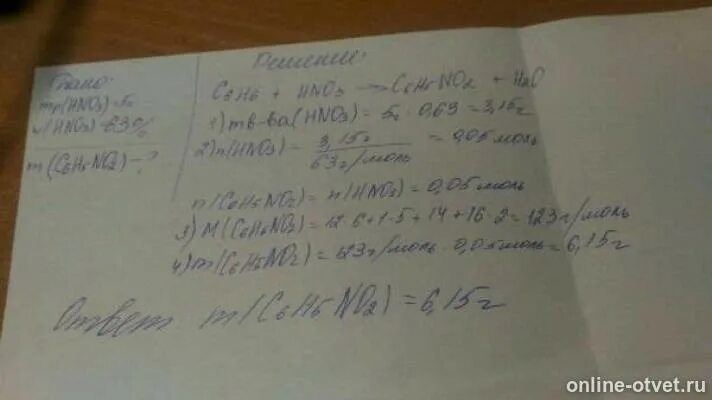 Дано:
mр(HNO3)=5г
w(HNO3)=63%
m(C6H5NO2)-?
Решение:
C6H6 + HNO3 → C6H5NO2 + H2O
1) mв-ва(HNO3) = 5г · 0,63 = 3,15г
2) n(HNO3) = 3,15г / 63г/моль = 0,05 моль
n(C6H5NO2) = n(HNO3) = 0,05 моль
3) M(C6H5NO2) = 12·6+1·5+14+16·2 = 123г/моль
4) m(C6H5NO2) = 123г/моль · 0,05моль = 6,15г
Ответ m(C6H5NO2) = 6,15г
online-otvet.ru